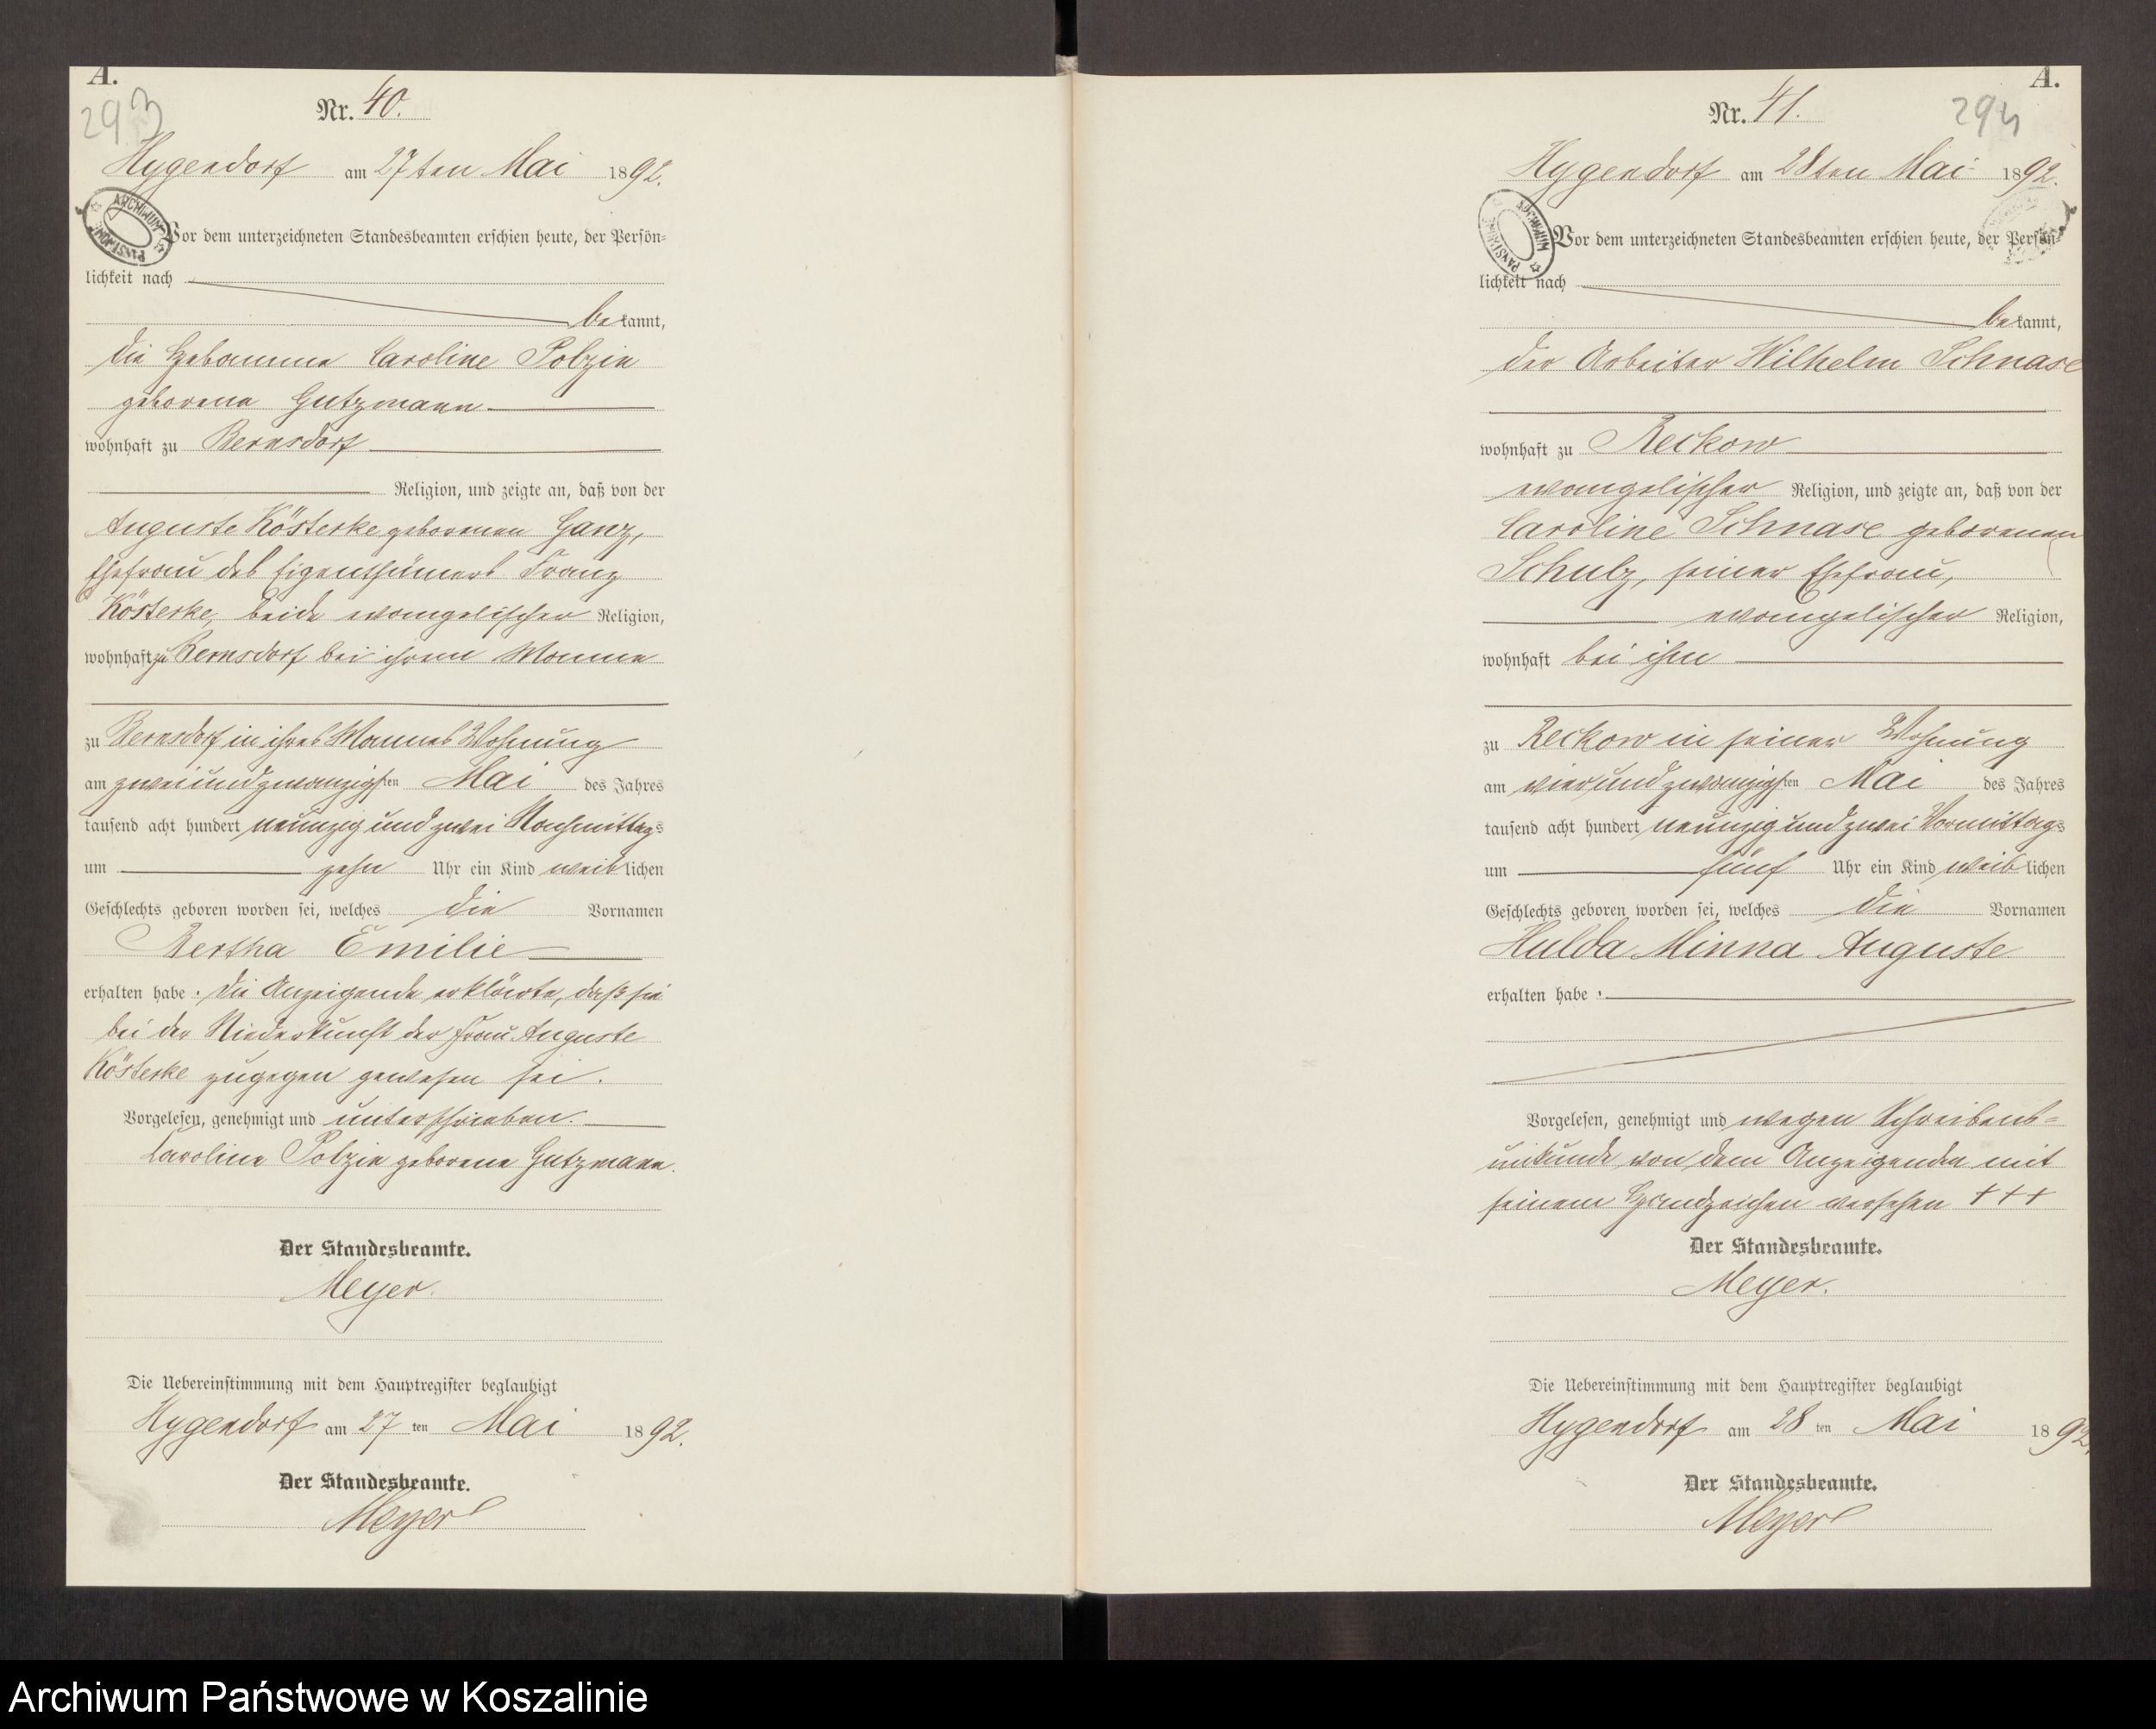 A.
293
Nr. 40.
Hygendorf am 27ten Mai 1892.
ARCHIWUM PAŃSTWOWE
Vor dem unterzeichneten Standesbeamten erschien heute, der Persön-
lichkeit nach
bekannt,
die Hebamme Caroline Polzin
geborene Gutzmann
wohnhaft zu Bernsdorf
Religion, und zeigte an, daß von der
Auguste Kösterke geborenen Ganz,
Ehefrau des Eigenthümers Franz
Kösterke, beide evangelischer Religion,
wohnhaft zu Bernsdorf bei ihrem Manne
zu Bernsdorf in ihres Mannes Wohnung
am zweiundzwanzigsten Mai des Jahres
tausend acht hundert neunzig und zwei Nachmittags
um zehn Uhr ein Kind weiblichen
Geschlechts geboren worden sei, welches die Vornamen
Bertha Emilie
erhalten habe. Die Anzeigende erklärte, daß sie
bei der Niederkunft der Frau Auguste
Kösterke zugegen gewesen sei.
Vorgelesen, genehmigt und unterschrieben.
Caroline Polzin geborene Gutzmann.
Der Standesbeamte.
Meyer.
Die Uebereinstimmung mit dem Hauptregister beglaubigt
Hygendorf am 27 ten Mai 1892.
Der Standesbeamte.
Meyer
A.
294
Nr. 41.
Hygendorf am 28ten Mai 1892.
ARCHIWUM PAŃSTWOWE
Vor dem unterzeichneten Standesbeamten erschien heute, der Persön-
lichkeit nach
bekannt,
der Arbeiter Wilhelm Schnase
wohnhaft zu Reckow
evangelischer Religion, und zeigte an, daß von der
Caroline Schnase geborenen
Schulz, seiner Ehefrau,
evangelischer Religion,
wohnhaft bei ihm
zu Reckow in seiner Wohnung
am vierundzwanzigsten Mai des Jahres
tausend acht hundert neunzig und zwei Vormittags
um fünf Uhr ein Kind weiblichen
Geschlechts geboren worden sei, welches die Vornamen
Hulda Minna Auguste
erhalten habe.
Vorgelesen, genehmigt und wegen Schreibens-
unkunde von dem Anzeigenden mit
seinem Handzeichen versehen +++
Der Standesbeamte.
Meyer.
Die Uebereinstimmung mit dem Hauptregister beglaubigt
Hygendorf am 28 ten Mai 1892.
Der Standesbeamte.
Meyer
Archiwum Państwowe w Koszalinie